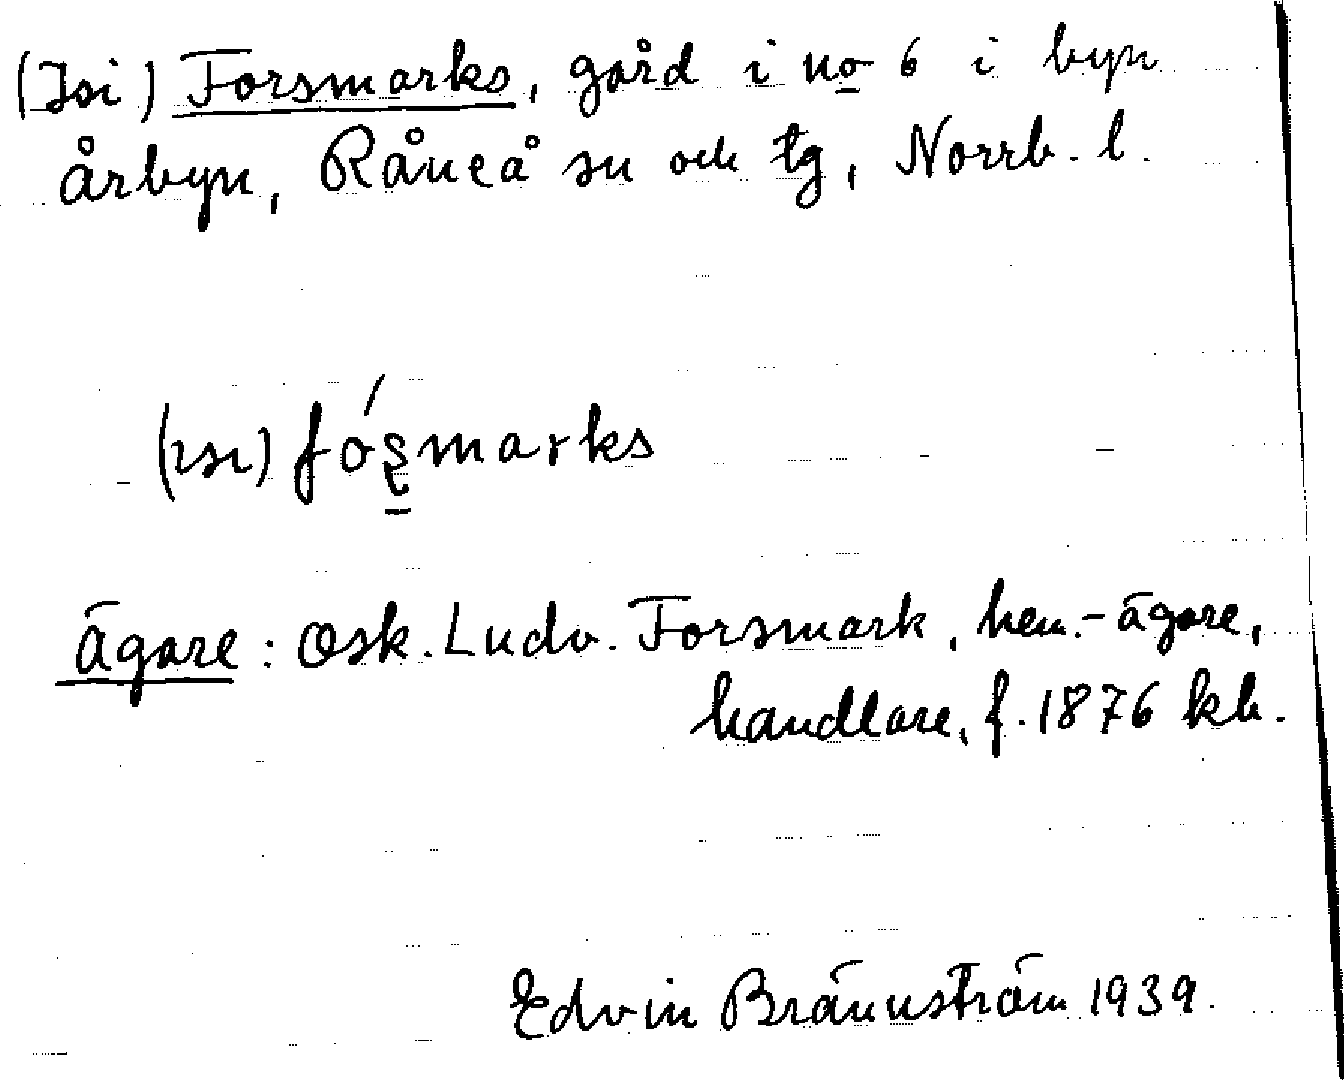 (Isi) Forsmarks, gård i no 6 i byn
årbyn, Råneå sn och tg, Norrb. l.
(ısı) fó̱ʂmarks
Ägare: Osk. Ludv. Forsmark, hem.-ägare,
handlare, f. 1876 kb.
Edvin Brännström 1939.